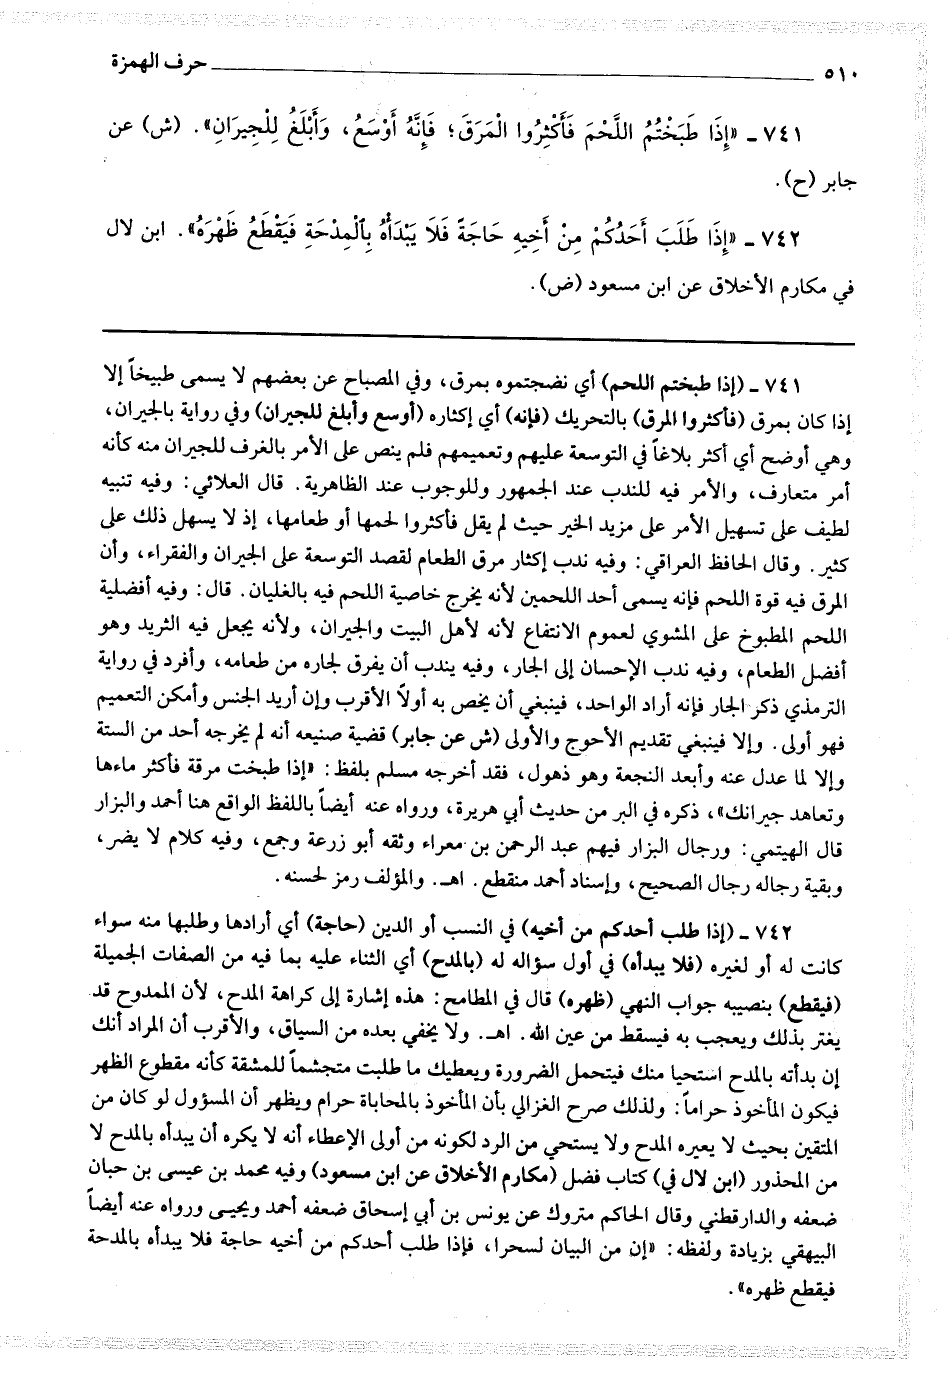 ٥١٠ حرف الهمزة
٧٤١ ـ «إِذَا طَبَخْتُمُ اللَّحْمَ فَأَكْثِرُوا الْمَرَقَ؛ فَإِنَّهُ أَوْسَعُ، وَأَبْلَغُ لِلْجِيرَانِ». (ش) عن
جابر (ح).
٧٤٢ ـ «إِذَا طَلَبَ أَحَدُكُمْ مِنْ أَخِيهِ حَاجَةً فَلَا يَبْدَأْهُ بِالْمِدْحَةِ فَيَقْطَعَ ظَهْرَهُ». ابن لال
في مكارم الأخلاق عن ابن مسعود (ض).
٧٤١ ـ (إذا طبختم اللحم) أي نضجتموه بمرق، وفي المصباح عن بعضهم لا يسمى طبيخاً إلا
إذا كان بمرق (فأكثروا المرق) بالتحريك (فإنه) أي إكثاره (أوسع وأبلغ للجيران) وفي رواية بالجيران،
وهي أوضح أي أكثر بلاغاً في التوسعة عليهم وتعميمهم فلم ينص على الأمر بالغرف للجيران منه كأنه
أمر متعارف، والأمر فيه للندب عند الجمهور وللوجوب عند الظاهرية. قال العلائي: وفيه تنبيه
لطيف على تسهيل الأمر على مزيد الخير حيث لم يقل فأكثروا لحمها أو طعامها، إذ لا يسهل ذلك على
كثير. وقال الحافظ العراقي: وفيه ندب إكثار مرق الطعام لقصد التوسعة على الجيران والفقراء، وأن
المرق فيه قوة اللحم فإنه يسمى أحد اللحمين لأنه يخرج خاصية اللحم فيه بالغليان. قال: وفيه أفضلية
اللحم المطبوخ على المشوي لعموم الانتفاع لأنه لأهل البيت والجيران، ولأنه يجعل فيه الثريد وهو
أفضل الطعام، وفيه ندب الإحسان إلى الجار، وفيه يندب أن يفرق لجاره من طعامه، وأفرد في رواية
الترمذي ذكر الجار فإنه أراد الواحد، فينبغي أن يخص به أولاً الأقرب وإن أريد الجنس وأمكن التعميم
فهو أولى. وإلا فينبغي تقديم الأحوج والأولى (ش عن جابر) قضية صنيعه أنه لم يخرجه أحد من الستة
وإلا لما عدل عنه وأبعد النجعة وهو ذهول، فقد أخرجه مسلم بلفظ: «إذا طبخت مرقة فأكثر ماءها
وتعاهد جيرانك»، ذكره في البر من حديث أبي هريرة، ورواه عنه أيضاً باللفظ الواقع هنا أحمد والبزار
قال الهيتمي: ورجال البزار فيهم عبد الرحمن بن معراء وثقه أبو زرعة وجمع، وفيه كلام لا يضر،
وبقية رجاله رجال الصحيح، وإسناد أحمد منقطع. اهـ. والمؤلف رمز لحسنه.
٧٤٢ ـ (إذا طلب أحدكم من أخيه) في النسب أو الدين (حاجة) أي أرادها وطلبها منه سواء
كانت له أو لغيره (فلا يبدأه) في أول سؤاله له (بالمدح) أي الثناء عليه بما فيه من الصفات الجميلة
(فيقطع) بنصيبه جواب النهي (ظهره) قال في المطامح: هذه إشارة إلى كراهة المدح، لأن الممدوح قد
يغتر بذلك ويعجب به فيسقط من عين الله. اهـ. ولا يخفي بعده من السياق، والأقرب أن المراد أنك
إن بدأته بالمدح استحيا منك فيتحمل الضرورة ويعطيك ما طلبت متجشماً للمشقة كأنه مقطوع الظهر
فيكون المأخوذ حراماً: ولذلك صرح الغزالي بأن المأخوذ بالمحاباة حرام ويظهر أن المسؤول لو كان من
المتقين بحيث لا يعيره المدح ولا يستحي من الرد لكونه من أولى الإعطاء أنه لا يكره أن يبدأه بالمدح لا
من المحذور (ابن لال في) كتاب فضل (مكارم الأخلاق عن ابن مسعود) وفيه محمد بن عيسى بن حبان
ضعفه والدارقطني وقال الحاكم متروك عن يونس بن أبي إسحاق ضعفه أحمد ويحيى ورواه عنه أيضاً
البيهقي بزيادة ولفظه: «إن من البيان لسحرا، فإذا طلب أحدكم من أخيه حاجة فلا يبدأه بالمدحة
فيقطع ظهره».